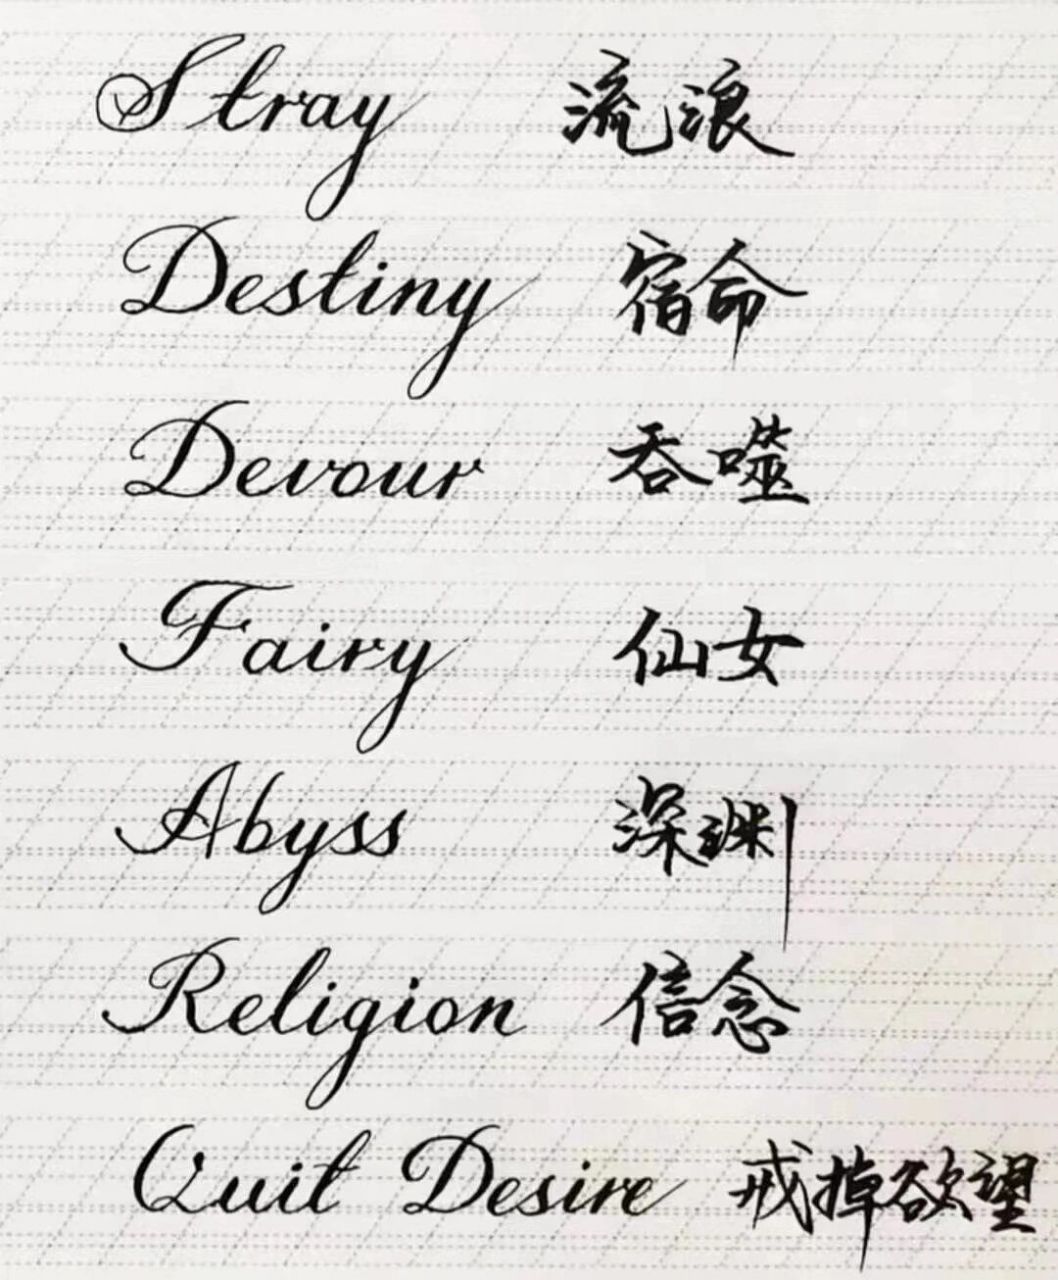 Stray 流浪
Destiny 宿命
Devour 吞噬
Fairy 仙女
Abyss 深渊
Religion 信念
Quit Desire 戒掉欲望